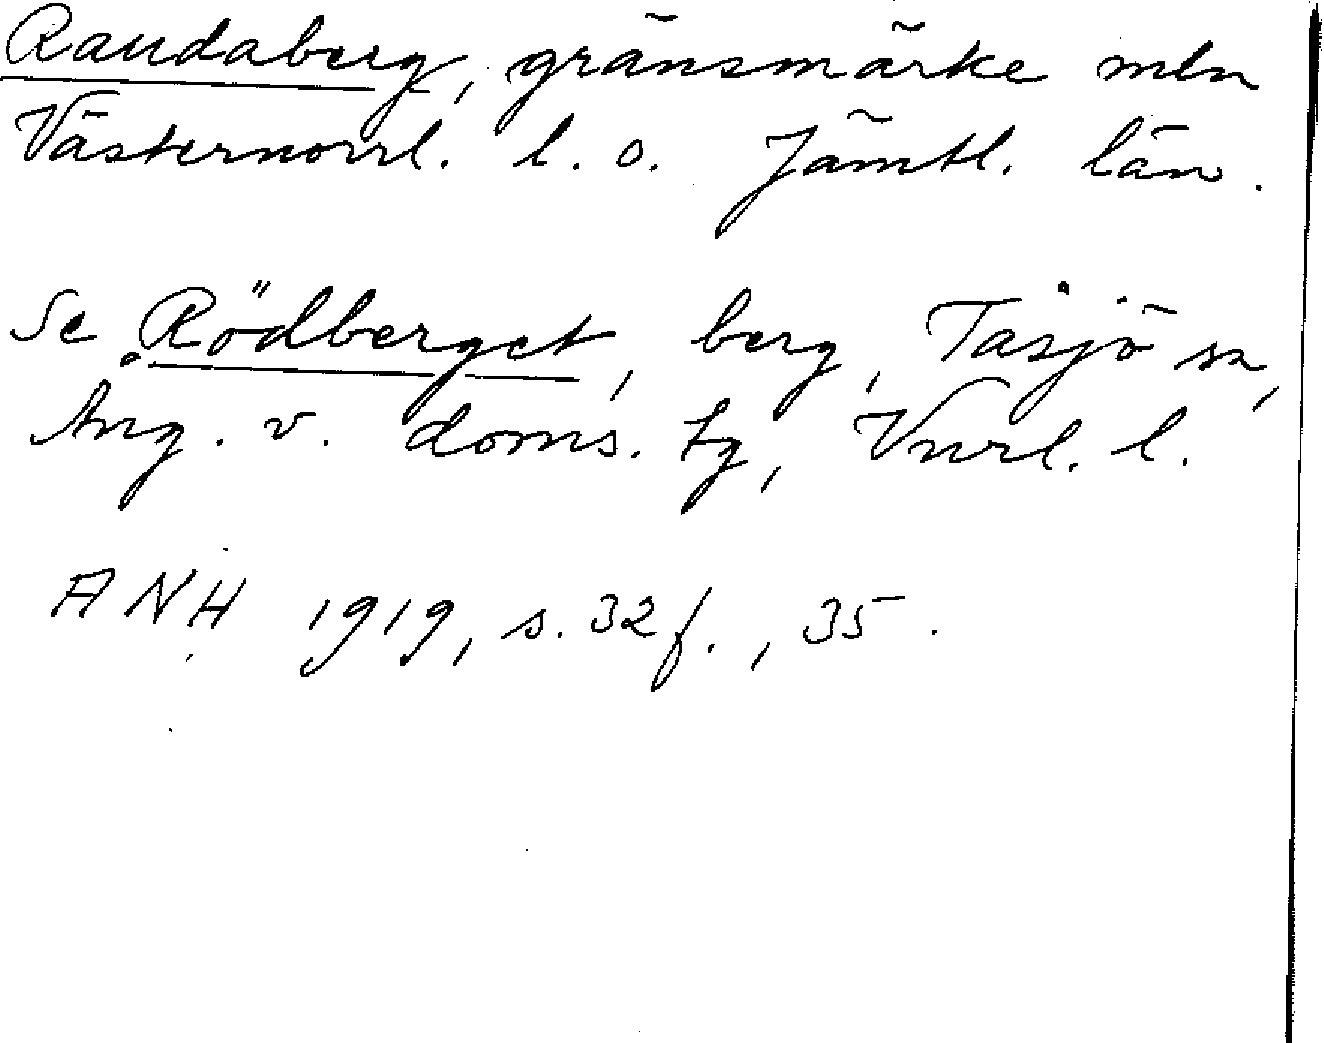 Raudaberg, gränsmärke mln
Västernorrl. l. o. Jämtl. län.
Se Rödberget, berg, Tåsjö sn,
Ång. v. doms. tg, Vnrl. l.
ANH 1919, s. 32 f., 35.